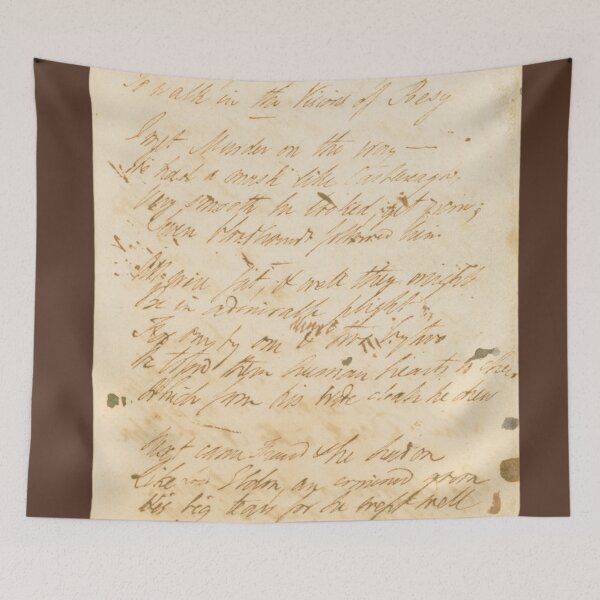 To walk in the Visions of Poesy
I met Murder on the way —
He had a mask like Castlereagh
Very smooth he looked, yet grim;
Seven bloodhounds followed him.
All were fat, & well they might
Be in admirable plight
For one by one & two by two
He tossed them human hearts to chew
Which from his wide cloak he drew
Next came Fraud & he had on
Like Eldon an ermined gown
His big tears for he wept well